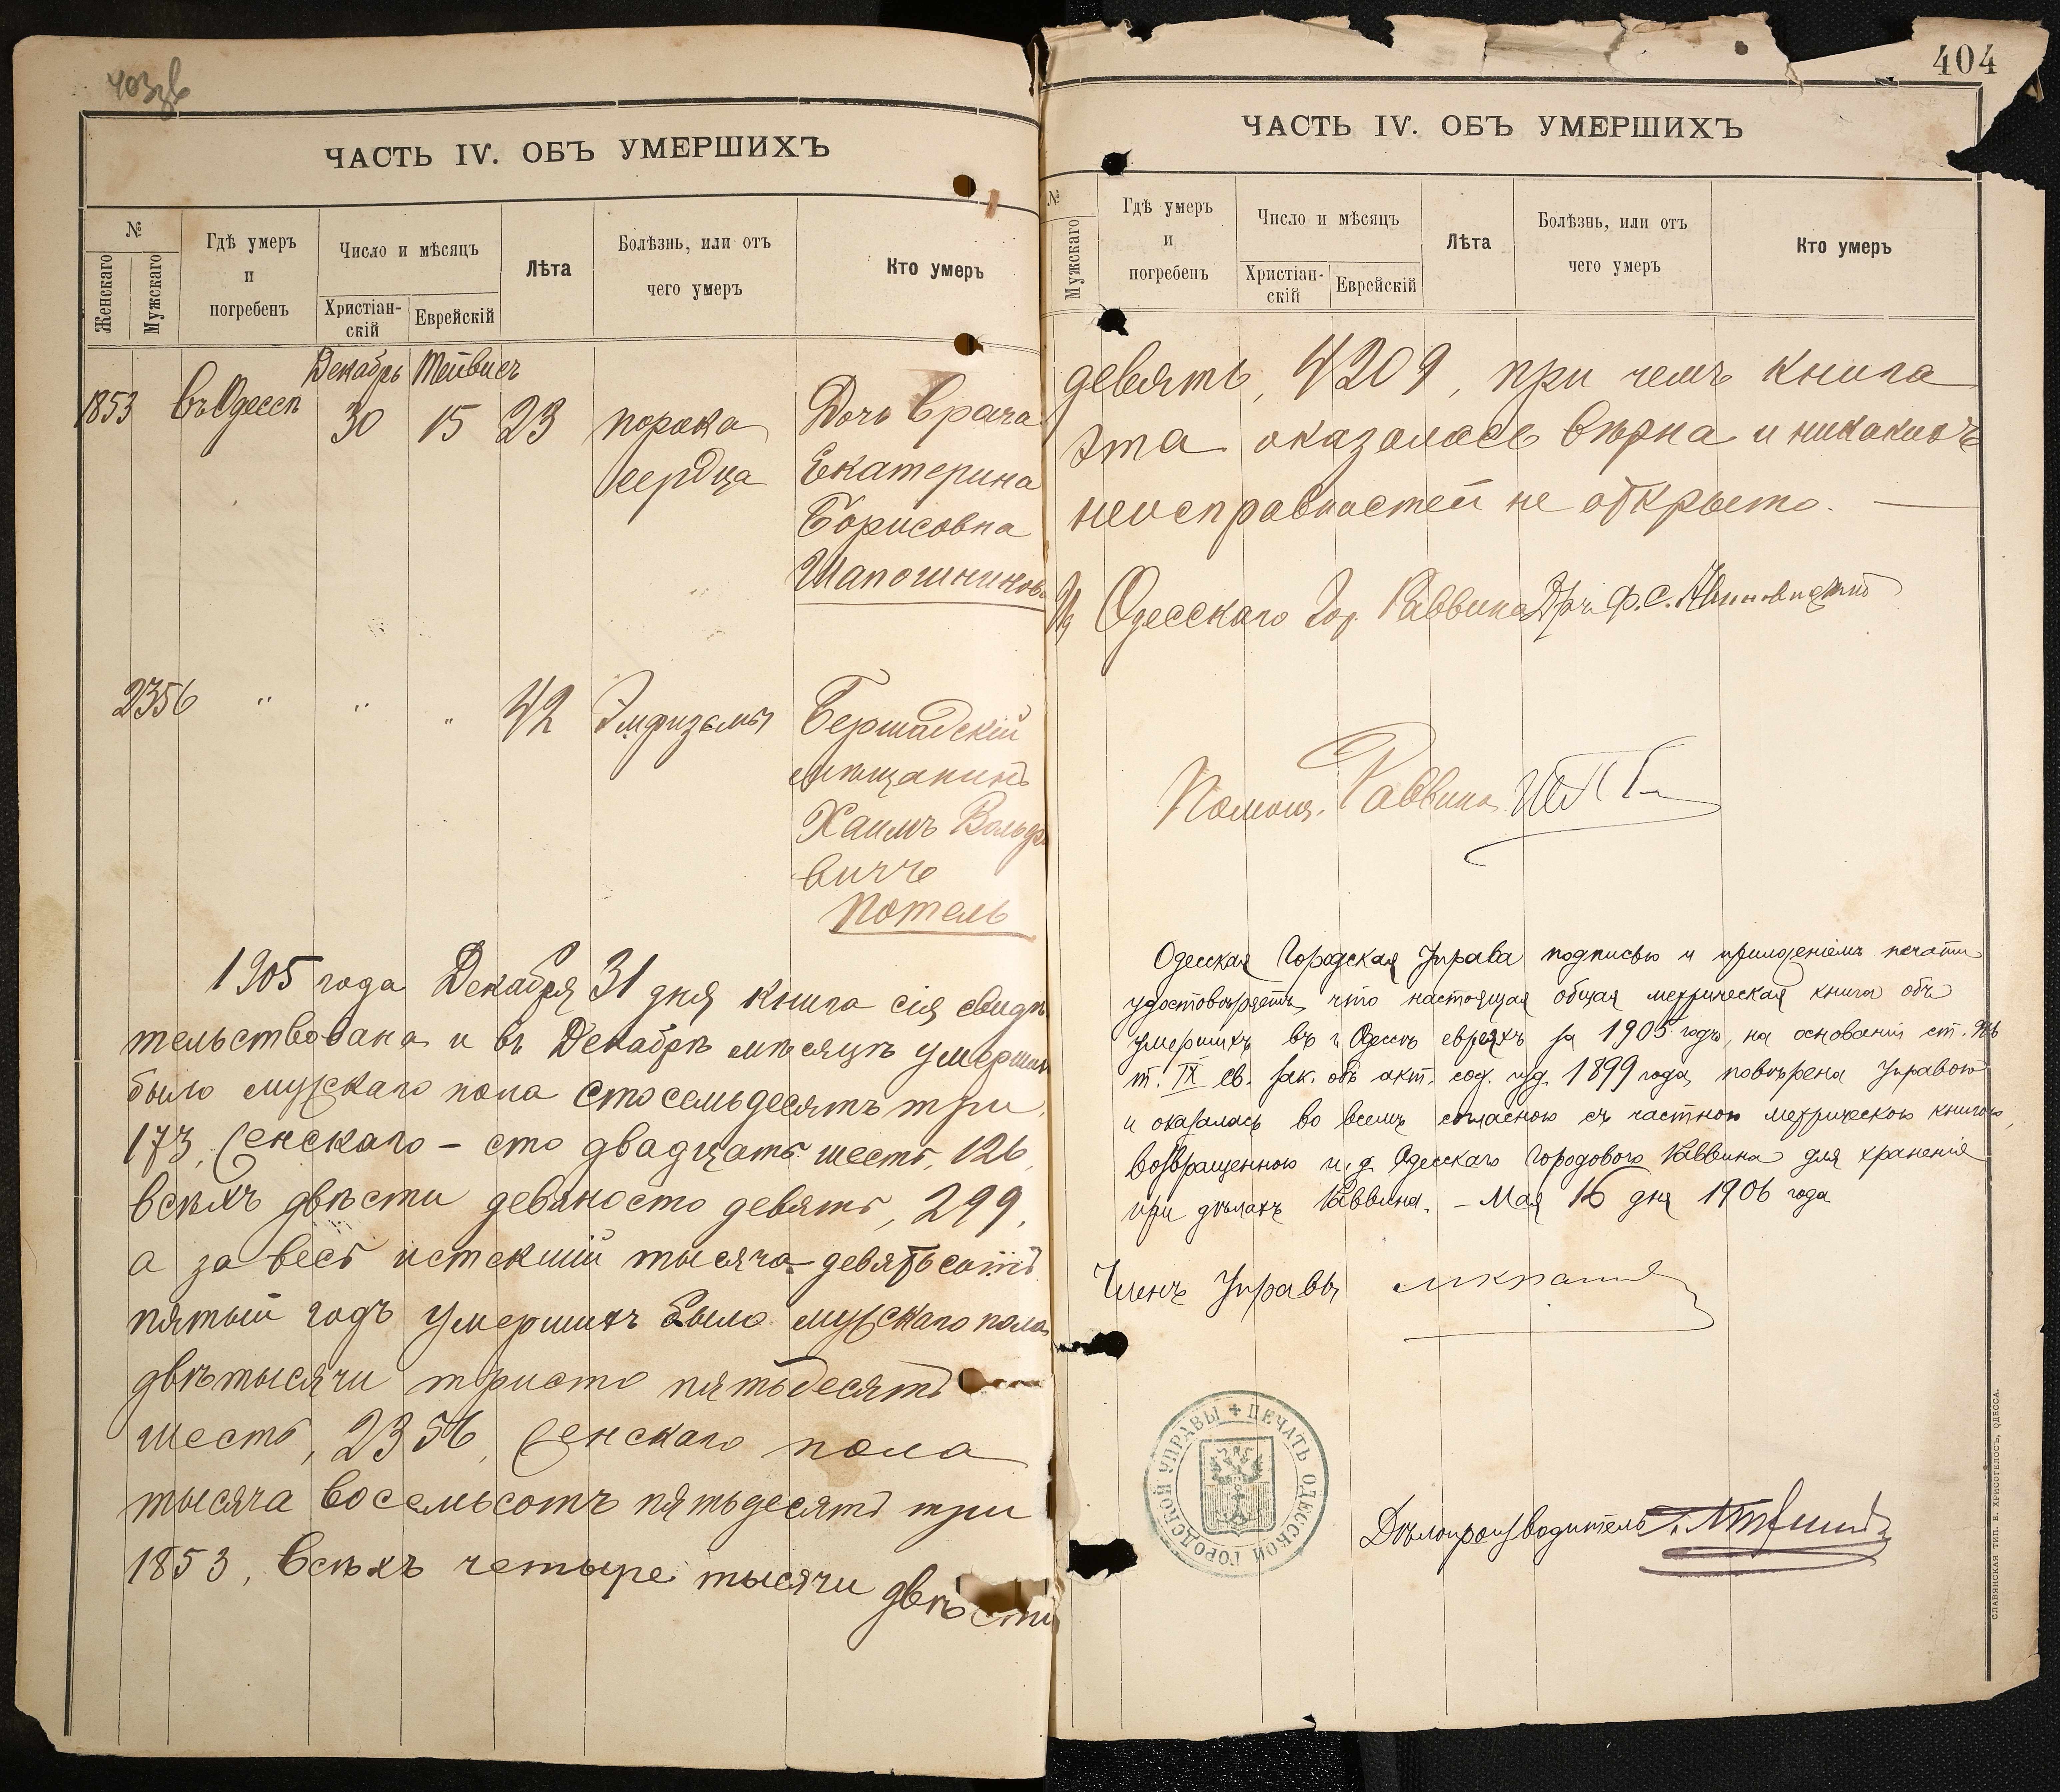 403об
ЧАСТЬ IV. ОБЪ УМЕРШИХЪ
№
Женскаго
Мужскаго
Гдѣ умеръ
и
погребенъ
Число и мѣсяцъ
Христіан-
скій
Еврейскій
Лѣта
Болѣзнь, или отъ
чего умеръ
Кто умеръ
Декабрь Тейвисъ
1853 въ Одессѣ 30 15 23 порока Дочь врача
сердца Екатерина
Борисовна
Шапошникова
2356 " " " 42 Эмфиземы Бершадскій
мѣщанинъ
Хаимъ Вольфо
вичъ
Потель
1905 года Декабря 31 дня книга сія свидѣ
тельствована и въ Декабрѣ мѣсяцѣ умершихъ
было мужскаго пола сто семьдесятъ три,
173, женскаго – сто двадцать шесть, 126,
всѣхъ двѣсти девяносто девять, 299,
а за весь истекшій тысяча девятьсотъ
пятый годъ умершихъ было мужскаго пола
двѣ тысячи триста пятьдесятъ
шесть, 2356, женскаго пола
тысяча восемьсотъ пятьдесятъ три
1853, всѣхъ четыре тысячи двѣсти
404
ЧАСТЬ IV. ОБЪ УМЕРШИХЪ
№
Мужскаго
Гдѣ умеръ
и
погребенъ
Число и мѣсяцъ
Христіан-
скій
Еврейскій
Лѣта
Болѣзнь, или отъ
чего умеръ
Кто умеръ
девять, 4209, при чемъ книга
эта оказалась вѣрна и никакихъ
неисправностей не открыто. —
Одесскаго Гор. Раввина Д-ръ Ф. С.
Помощ. Раввина
Одесская Городская Управа подписью и приложеніемъ печати
удостовѣряетъ, что настоящая общая метрическая книга объ
умершихъ въ г. Одессѣ евреяхъ за 1905 годъ, на основаніи ст.
т. IX св. зак. объ акт. сост. изд. 1899 года, повѣрена Управою
и оказалась во всемъ согласною съ частною метрическою книгою,
возвращенною и. д. Одесскаго Городового Раввина для храненія
при дѣлахъ Раввина. – Мая 16 дня 1906 года
Членъ Управы
ПЕЧАТЬ ОДЕССКОЙ ГОРОДСКОЙ УПРАВЫ
Дѣлопроизводитель
СЛАВЯНСКАЯ ТИП. Е. ХРИСОГЕЛОСЪ, ОДЕССА.